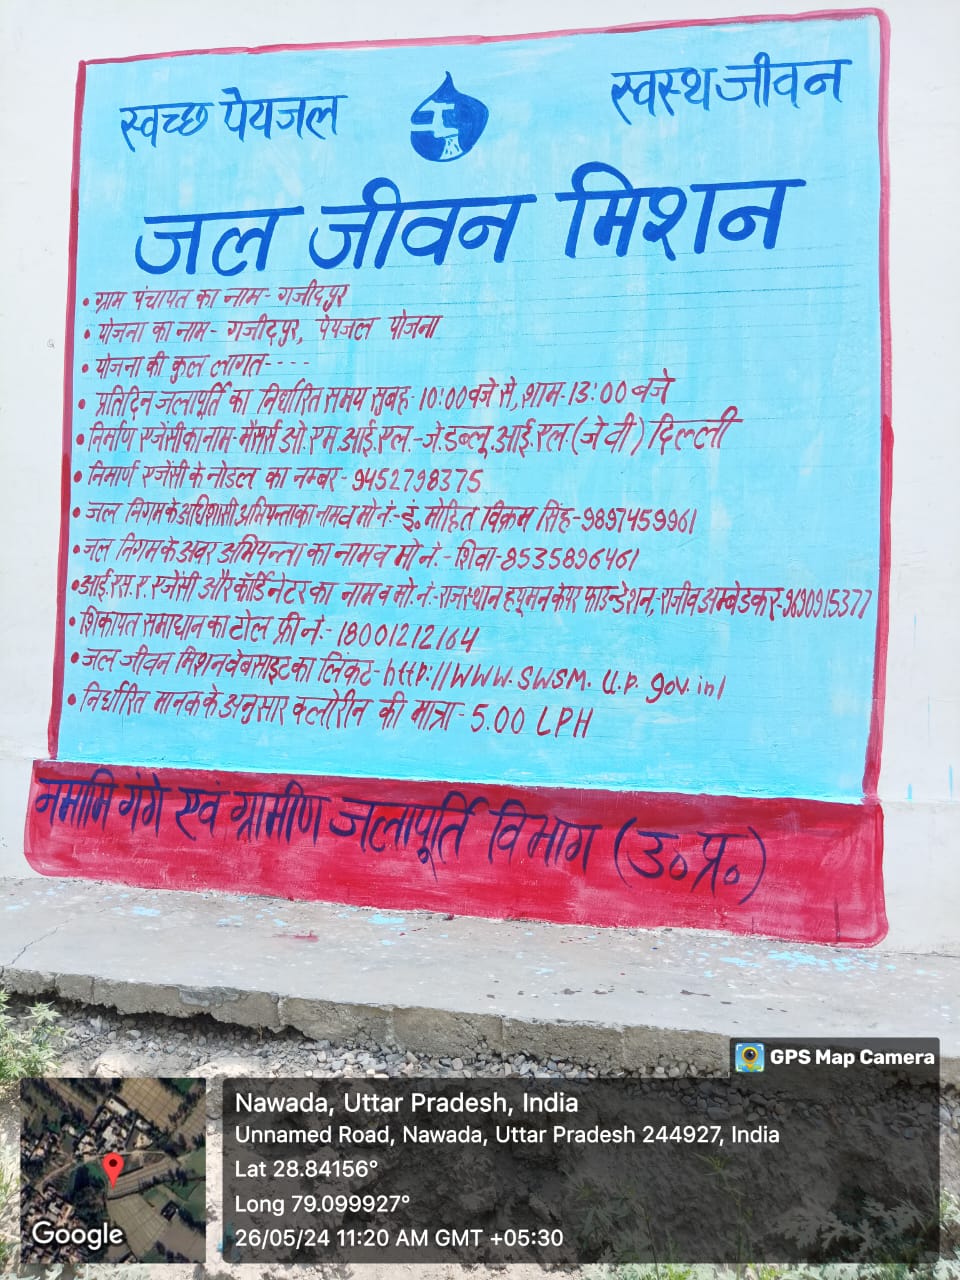 स्वच्छ पेयजल
स्वस्थ जीवन
जल जीवन मिशन
• ग्राम पंचायत का नाम- गजीदपुर
• योजना का नाम- गजीदपुर, पेयजल योजना
• योजना की कुल लागत- - - -
• प्रतिदिन जलापूर्ति का निर्धारित समय सुबह-10:00 बजे से, शाम-13:00 बजे
• निर्माण एजेंसी का नाम-मैसर्स ओ.एम.आई.एल.-जे.डब्लू.आई.एल.(जे वी) दिल्ली
• निमार्ण एजेंसी के नोडल का नम्बर-9452798375
• जल निगम के अधिशासी अभियन्ता का नाम व मो नं.-इं. मोहित विक्रम सिंह-9897459961
• जल निगम के अवर अभियन्ता का नाम व मो नं.- शिवा-8535896461
• आई.एस.ए. एजेंसी और कॉर्डिनेटर का नाम व मो. नं.-राजस्थान ह्यूमन केयर फाउन्डेशन,-राजीव अम्बेडकर-9690915377
• शिकायत समाधान का टोल फ्री नं.-18001212164
• जल जीवन मिशन वेबसाइट का लिंकट-http://www.swsm.up.gov.in/
• निर्धारित मानक के अनुसार क्लोरीन की मात्रा-5.00 LPH
नमामि गंगे एवं ग्रामीण जलापूर्ति विभाग (उ०प्र०)
GPS Map Camera
Nawada, Uttar Pradesh, India
Unnamed Road, Nawada, Uttar Pradesh 244927, India
Lat 28.84156°
Long 79.099927°
26/05/24 11:20 AM GMT +05:30
Google